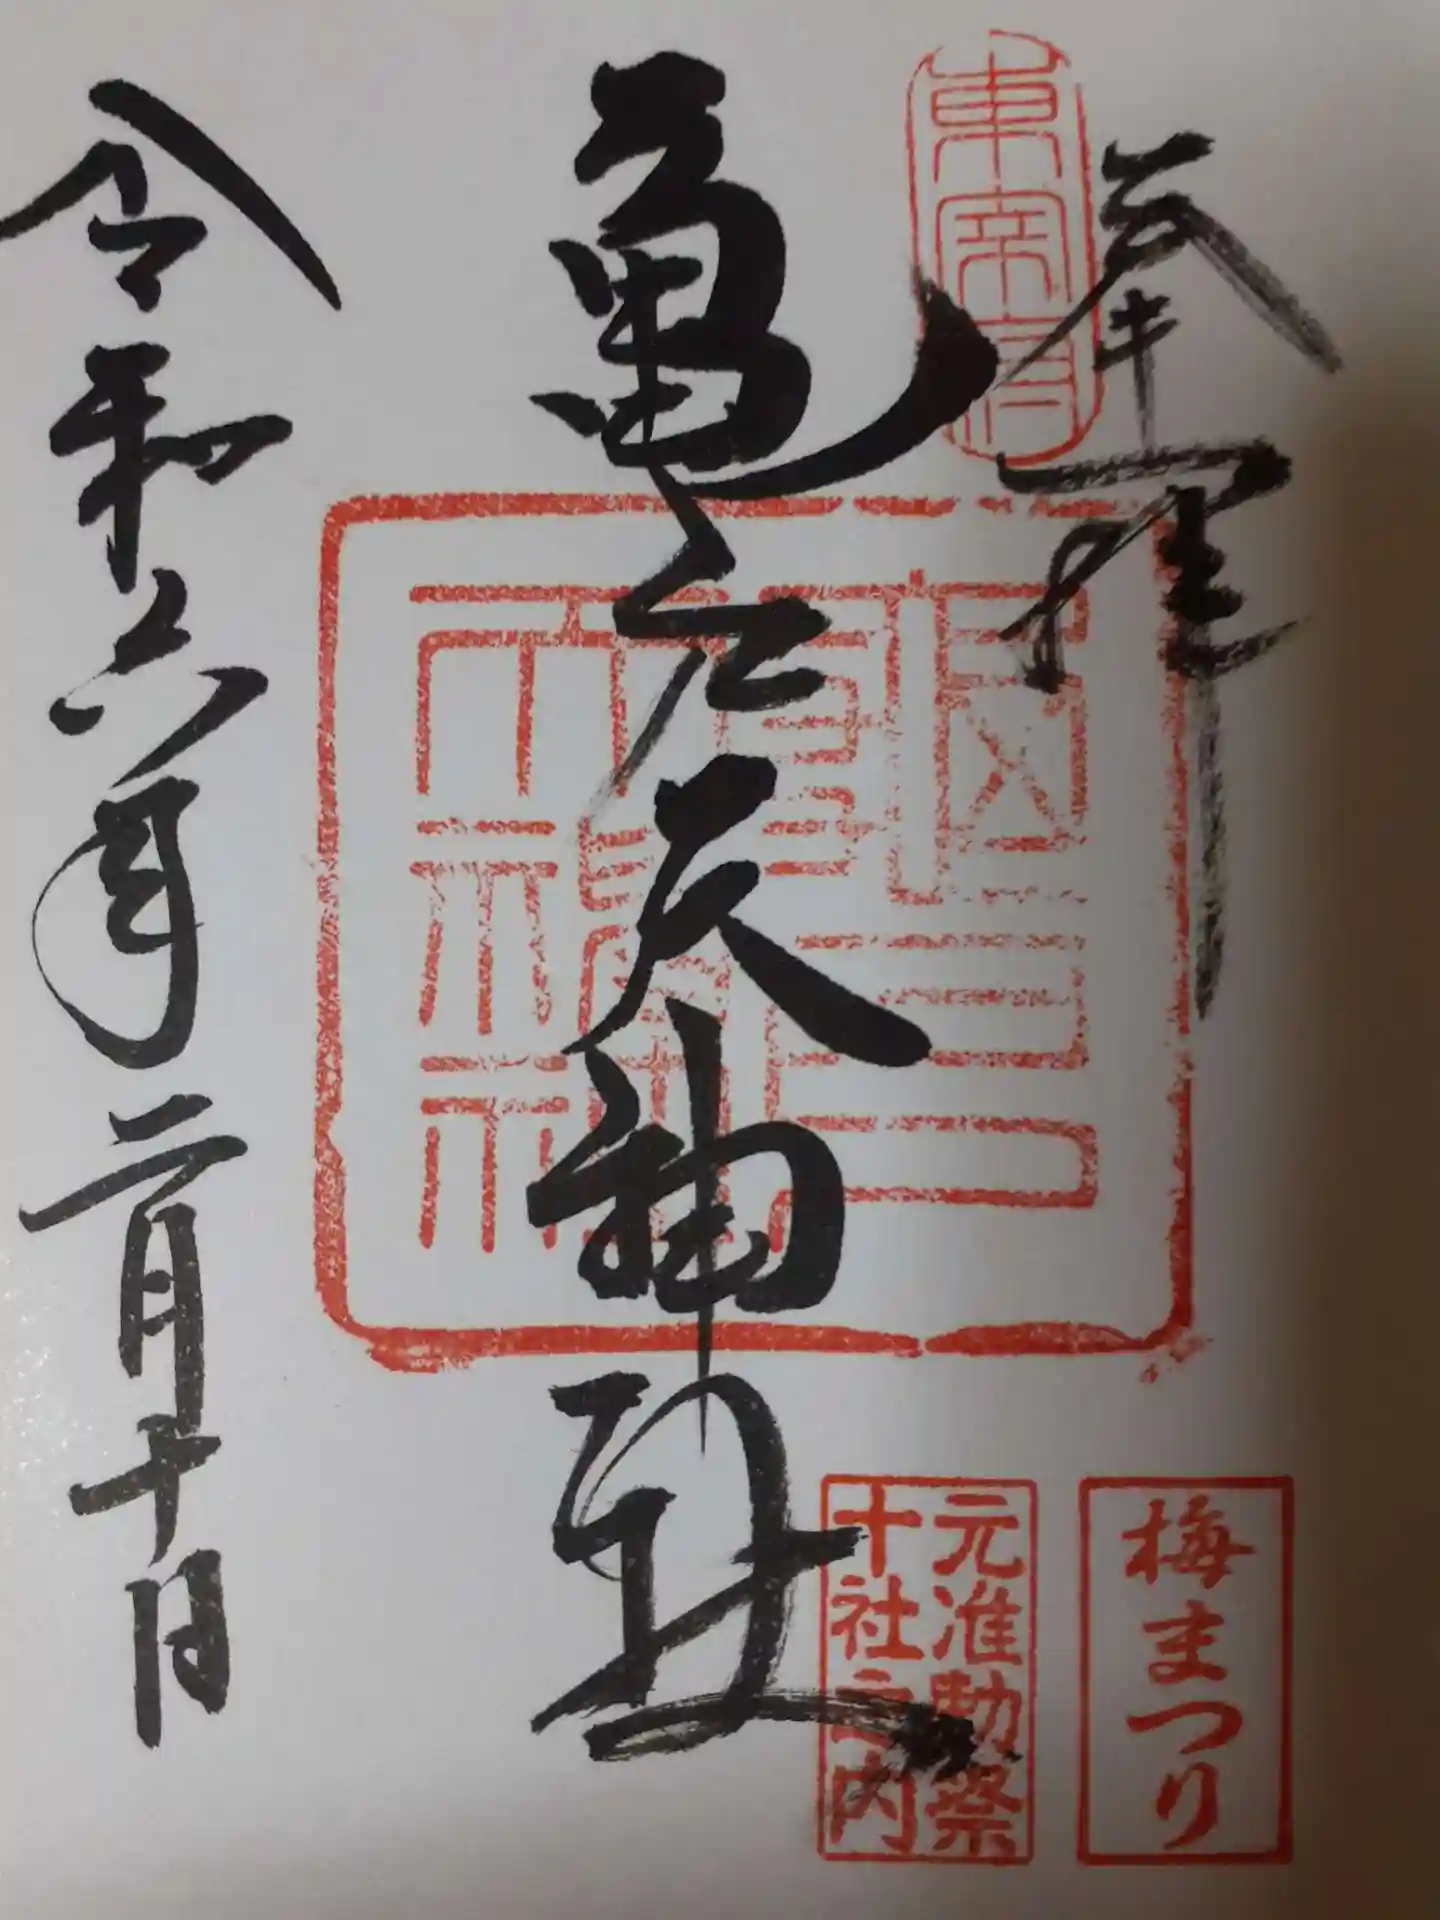 奉拝
東宰府
亀戸天神社
令和六年二月十日
梅まつり
元准勅祭
十社之内